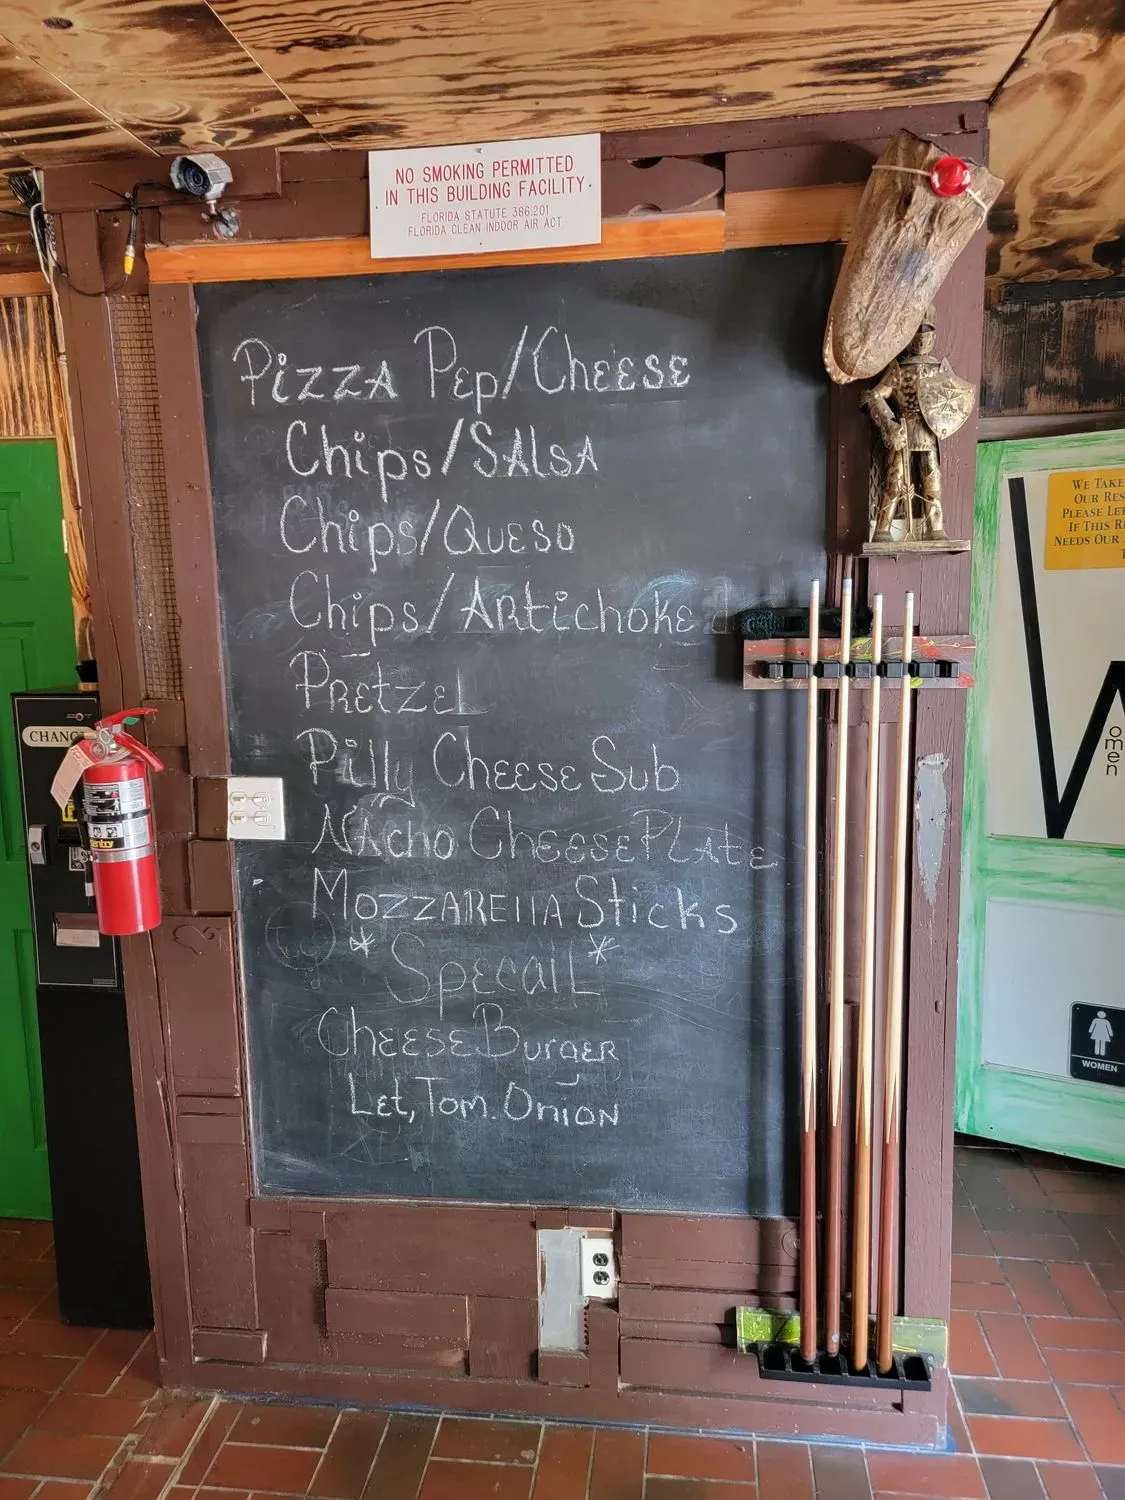 NO SMOKING PERMITTED
IN THIS BUILDING FACILITY.
FLORIDA STATUTE 386.201
FLORIDA CLEAN INDOOR AIR ACT
Pizza Pep/Cheese
Chips/Salsa
Chips/Queso
Chips/Artichoke
Pretzel
Pilly Cheese Sub
Nacho Cheese Plate
Mozzarella Sticks
* Specail *
Cheese Burger
Let, Tom. Onion
CHANG
WE TAKE
OUR RES
PLEASE LET
IF THIS R
NEEDS OUR
Women
WOMEN